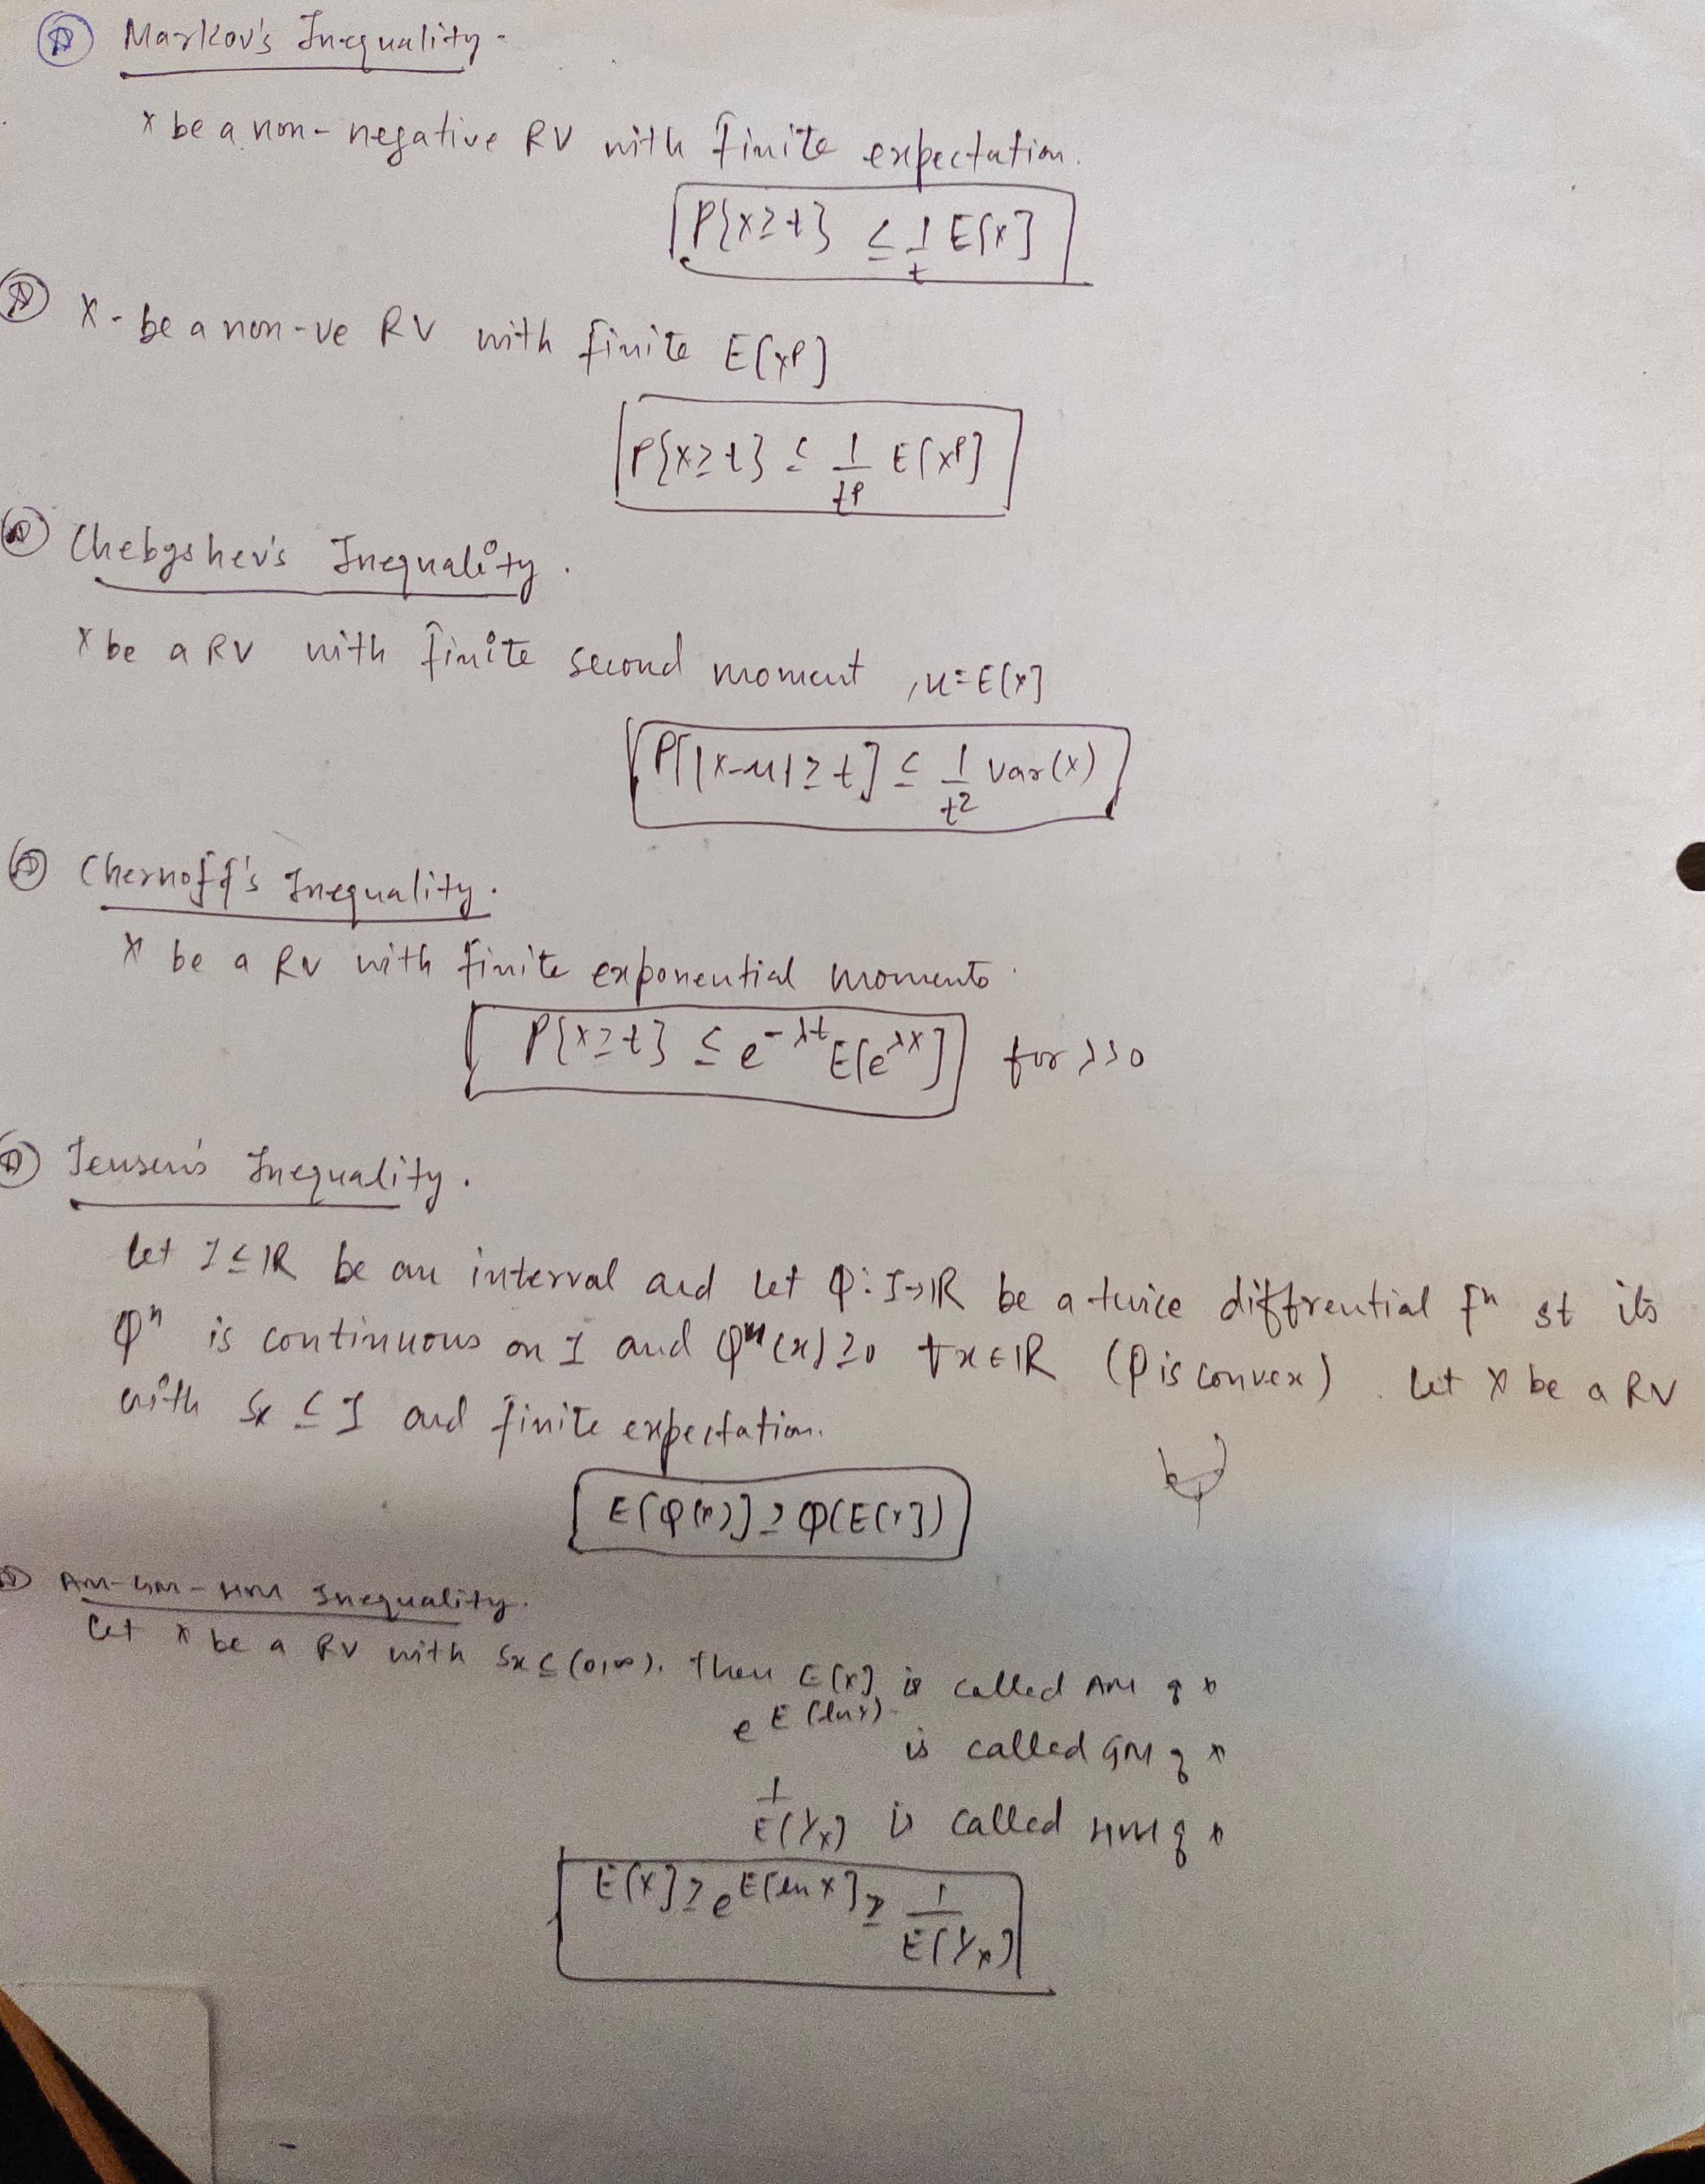 Markov's Inequality -
X be a non-negative RV with finite expectation.
P{X≥t} ≤ 1/t E[X]
X - be a non-ve RV with finite E[X^p]
P{X≥t} ≤ 1/t^p E[X^p]
Chebyshev's Inequality.
X be a RV with finite second moment, μ=E[X]
P[|X-μ|≥t] ≤ 1/t² Var(X)
Chernoff's Inequality.
X be a RV with finite exponential moments.
P{X≥t} ≤ e^-λt E[e^λX] for λ>0
Jensen's Inequality.
Let I⊆ℝ be an interval and let φ:I→ℝ be a twice diffrential fⁿ st its
φ" is continuous on I and φ"(x)≥0 ∀x∈ℝ (φ is convex). Let X be a RV
with Sx ⊆ I and finite expectation.
E[φ(X)] ≥ φ(E[X])
AM-GM-HM Inequality.
Let X be a RV with Sx⊆(0,∞). Then E[X] is called AM of X
e^E(lnX) is called GM of X
1/E[1/X] is called HM of X
E[X] ≥ e^E[lnX] ≥ 1/E[1/X]